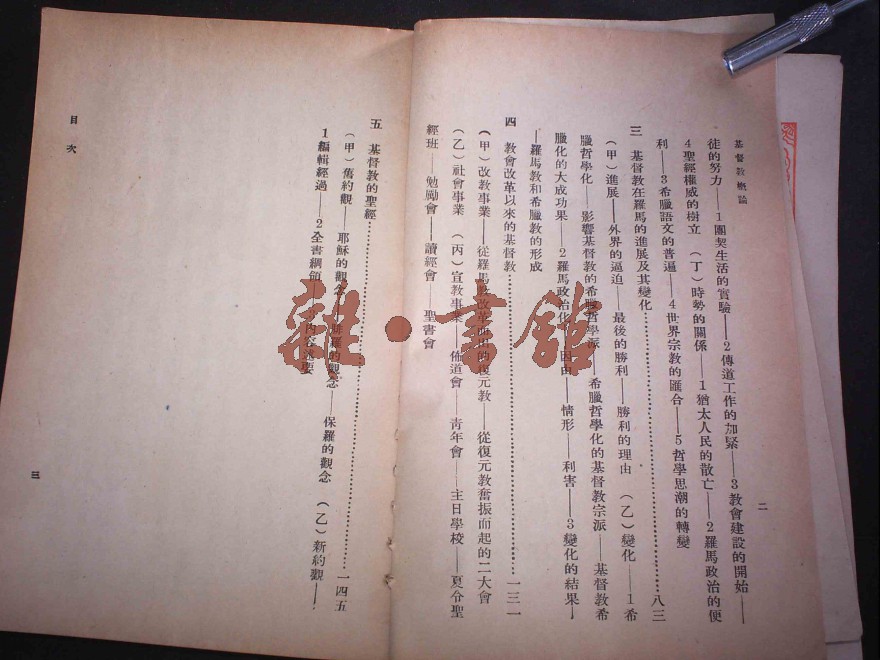 基督教概論
徒的努力——1團契生活的實驗——2傳道工作的加緊——3教會建設的開始——
4聖經權威的樹立 (丁)時勢的關係——1猶太人民的散亡——2羅馬政治的便
利——3希臘語文的普遍——4世界宗教的匯合——5哲學思潮的轉變
三 基督教在羅馬的進展及其變化……八三
(甲)進展——外界的逼迫——最後的勝利——勝利的理由 (乙)變化——1希
臘哲學化——影響基督教的希臘哲學派——希臘哲學化的基督教宗派——基督教希
臘化的大成功果——2羅馬政治化——因由——情形——利害——3變化的結果
——羅馬教和希臘教的形成
四 教會改革以來的基督教……一三一
(甲)改教事業——從羅馬教改革而出的復元教——從復元教奮振而起的二大會
(乙)社會事業 (丙)宣教事業——佈道會——青年會——主日學校——夏令聖
經班——勉勵會——讀經會——聖書會
二
五 基督教的聖經……一四五
(甲)舊約觀——耶穌的觀念——的觀念——保羅的觀念 (乙)新約觀——
1編輯經過——2全書綱領——內容述要
目次
三
雜·書館